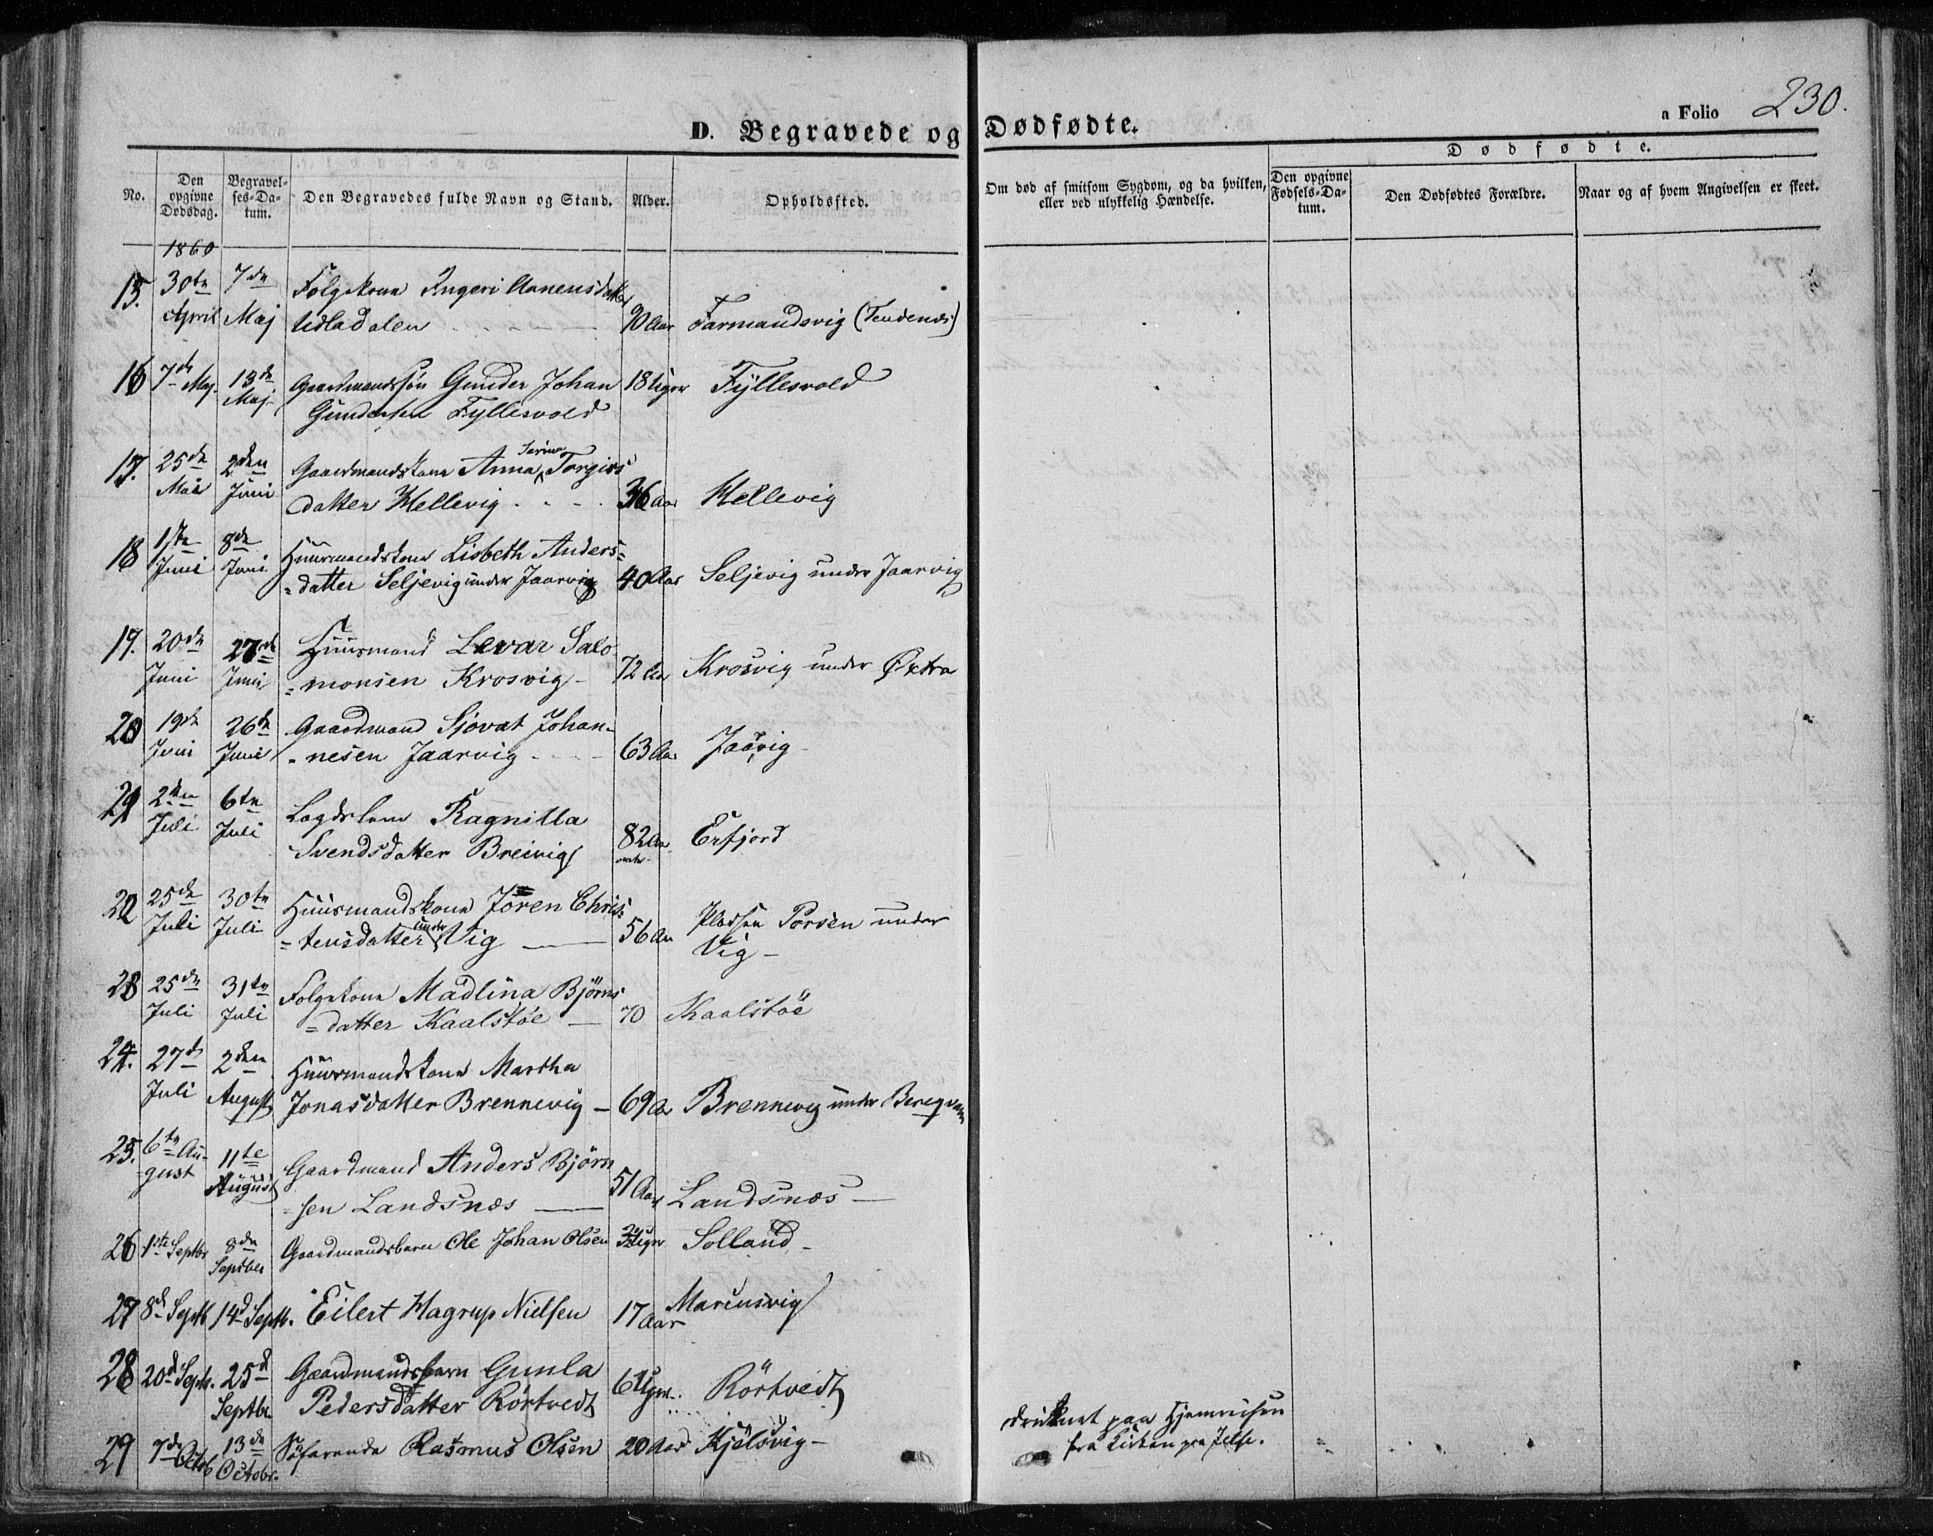 a Folio 230.
D. Begravede og Dødfødte.
No.
Den opgivne Dødsdag.
Begravelses-Datum.
Den Begravedes fulde Navn og Stand.
Alder.
Opholdssted.
Om død af smitsom Sygdom, og da hvilken, eller ved ulykkelig Hændelse.
Dødfødte.
Den opgivne Fødsels-Datum.
Den Dødfødtes Forældre.
Naar og af hvem Angivelsen er skeet.
1860
15. 30te 7de Folgekone Ingeri
April Maj 90 Aar Farmandsvig
16 7de Maj. 13de Gaardmandssøn Gunder Johan 18 Uger Fyllesvold
Maj Gundersen Fyllesvold
17. 25de 2den Gaardmandskone Anna Serina Torgirs
Mai Juni datter Hellevig 36 Aar Hellevig
18 1ste 8de Huusmandskone Lisbeth Anders=
Juni Juni =datter Seljevig under Jaarvig 40 Aar Seljevig under Jaarvig
19. 20de 27de Huusmand Levar Salo
Juni Juni =monsen Krosvig 72 Aar Krosvig under Øxtra
20 19de 26de Gaardmand Sjovat Johan=
Juni Juni =nesen Jaarvig 63 Aar Jaarvig
21 2den 6te Lægdslem Ragnilla
Juli Juli Svendsdatter Breivig 82 Aar Erfjord
22 25de 30te Huusmandskone Jören Chris=
Juli Juli =tensdatter under Vig 56 Aar Pladsen Porsen under
Vig
23 25de 31te Folgekone Madlina Bjørns
Juli Juli =datter Kaalstöe 70 Kaalstöe
24. 27de 2den Huusmandskone Martha
Juli August Jonasdatter Brennevig 69 Aar Brennevig under Beregvam
25. 6te Au= 11te Gaardmand Anders Bjørn
=gust August =sen Landsnæs 51 Aar Landsnæs
26 1ste Septbr 8de Gaardmandsbarn Ole Johan Olsen Uger Solland
Septber
27 8de Septb 14de Septb. Eilert Hagrup Nielsen 17 Aar Marensvig
28 20de Septb. 25de Gaardmandsbarn Gunla
Septbr. Pedersdatter Rörtvedt 6 Uger. Rörtvedt
29 7de Octob 13de Octobr. Søfarende Rasmus Olsen 20 Aar Hjelsvig
druknet paa Hjemreisen
fra Kirken paa Jelse.